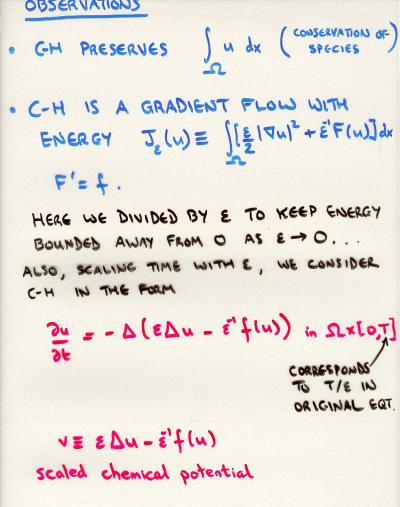 OBSERVATIONS
• C-H PRESERVES ∫_Ω u dx (CONSERVATION OF SPECIES)
• C-H IS A GRADIENT FLOW WITH
ENERGY J_ε(u) ≡ ∫_Ω [ε/2 |∇u|² + ε⁻¹F(u)] dx
F' = f .
HERE WE DIVIDED BY ε TO KEEP ENERGY
BOUNDED AWAY FROM 0 AS ε → 0...
ALSO, SCALING TIME WITH ε, WE CONSIDER
C-H IN THE FORM
∂u/∂t = - Δ(εΔu - ε⁻¹f(u)) in Ω×[0,T]
CORRESPONDS
TO T/ε IN
ORIGINAL EQT.
v ≡ εΔu - ε⁻¹f(u)
scaled chemical potential